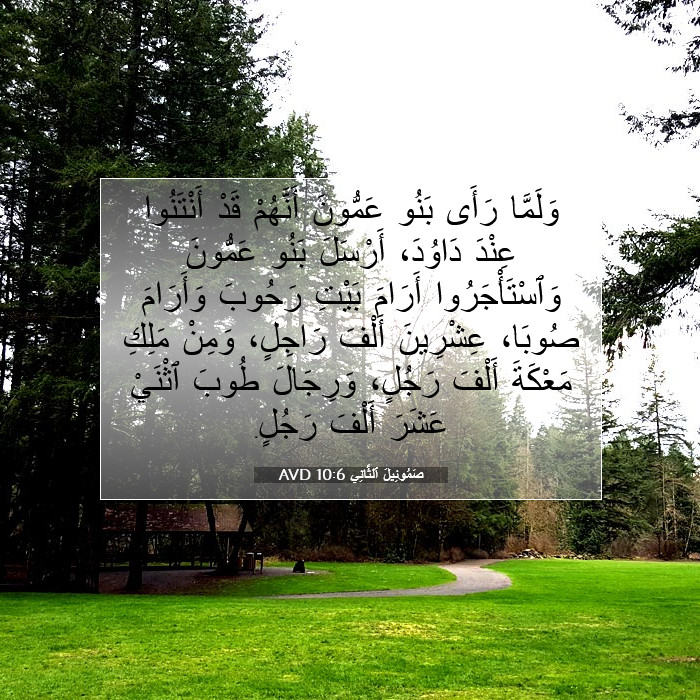 وَلَمَّا رَأَى بَنُو عَمُّونَ أَنَّهُمْ قَدْ أَنْتَنُوا
عِنْدَ دَاوُدَ، أَرْسَلَ بَنُو عَمُّونَ
وَٱسْتَأْجَرُوا أَرَامَ بَيْتِ رَحُوبَ وَأَرَامَ
صُوبَا، عِشْرِينَ أَلْفَ رَاجِلٍ، وَمِنْ مَلِكِ
مَعْكَةَ أَلْفَ رَجُلٍ، وَرِجَالَ طُوبَ ٱثْنَيْ
عَشَرَ أَلْفَ رَجُلٍ.
صَمُوئِيلَ ٱلثَّانِي 10:6 AVD